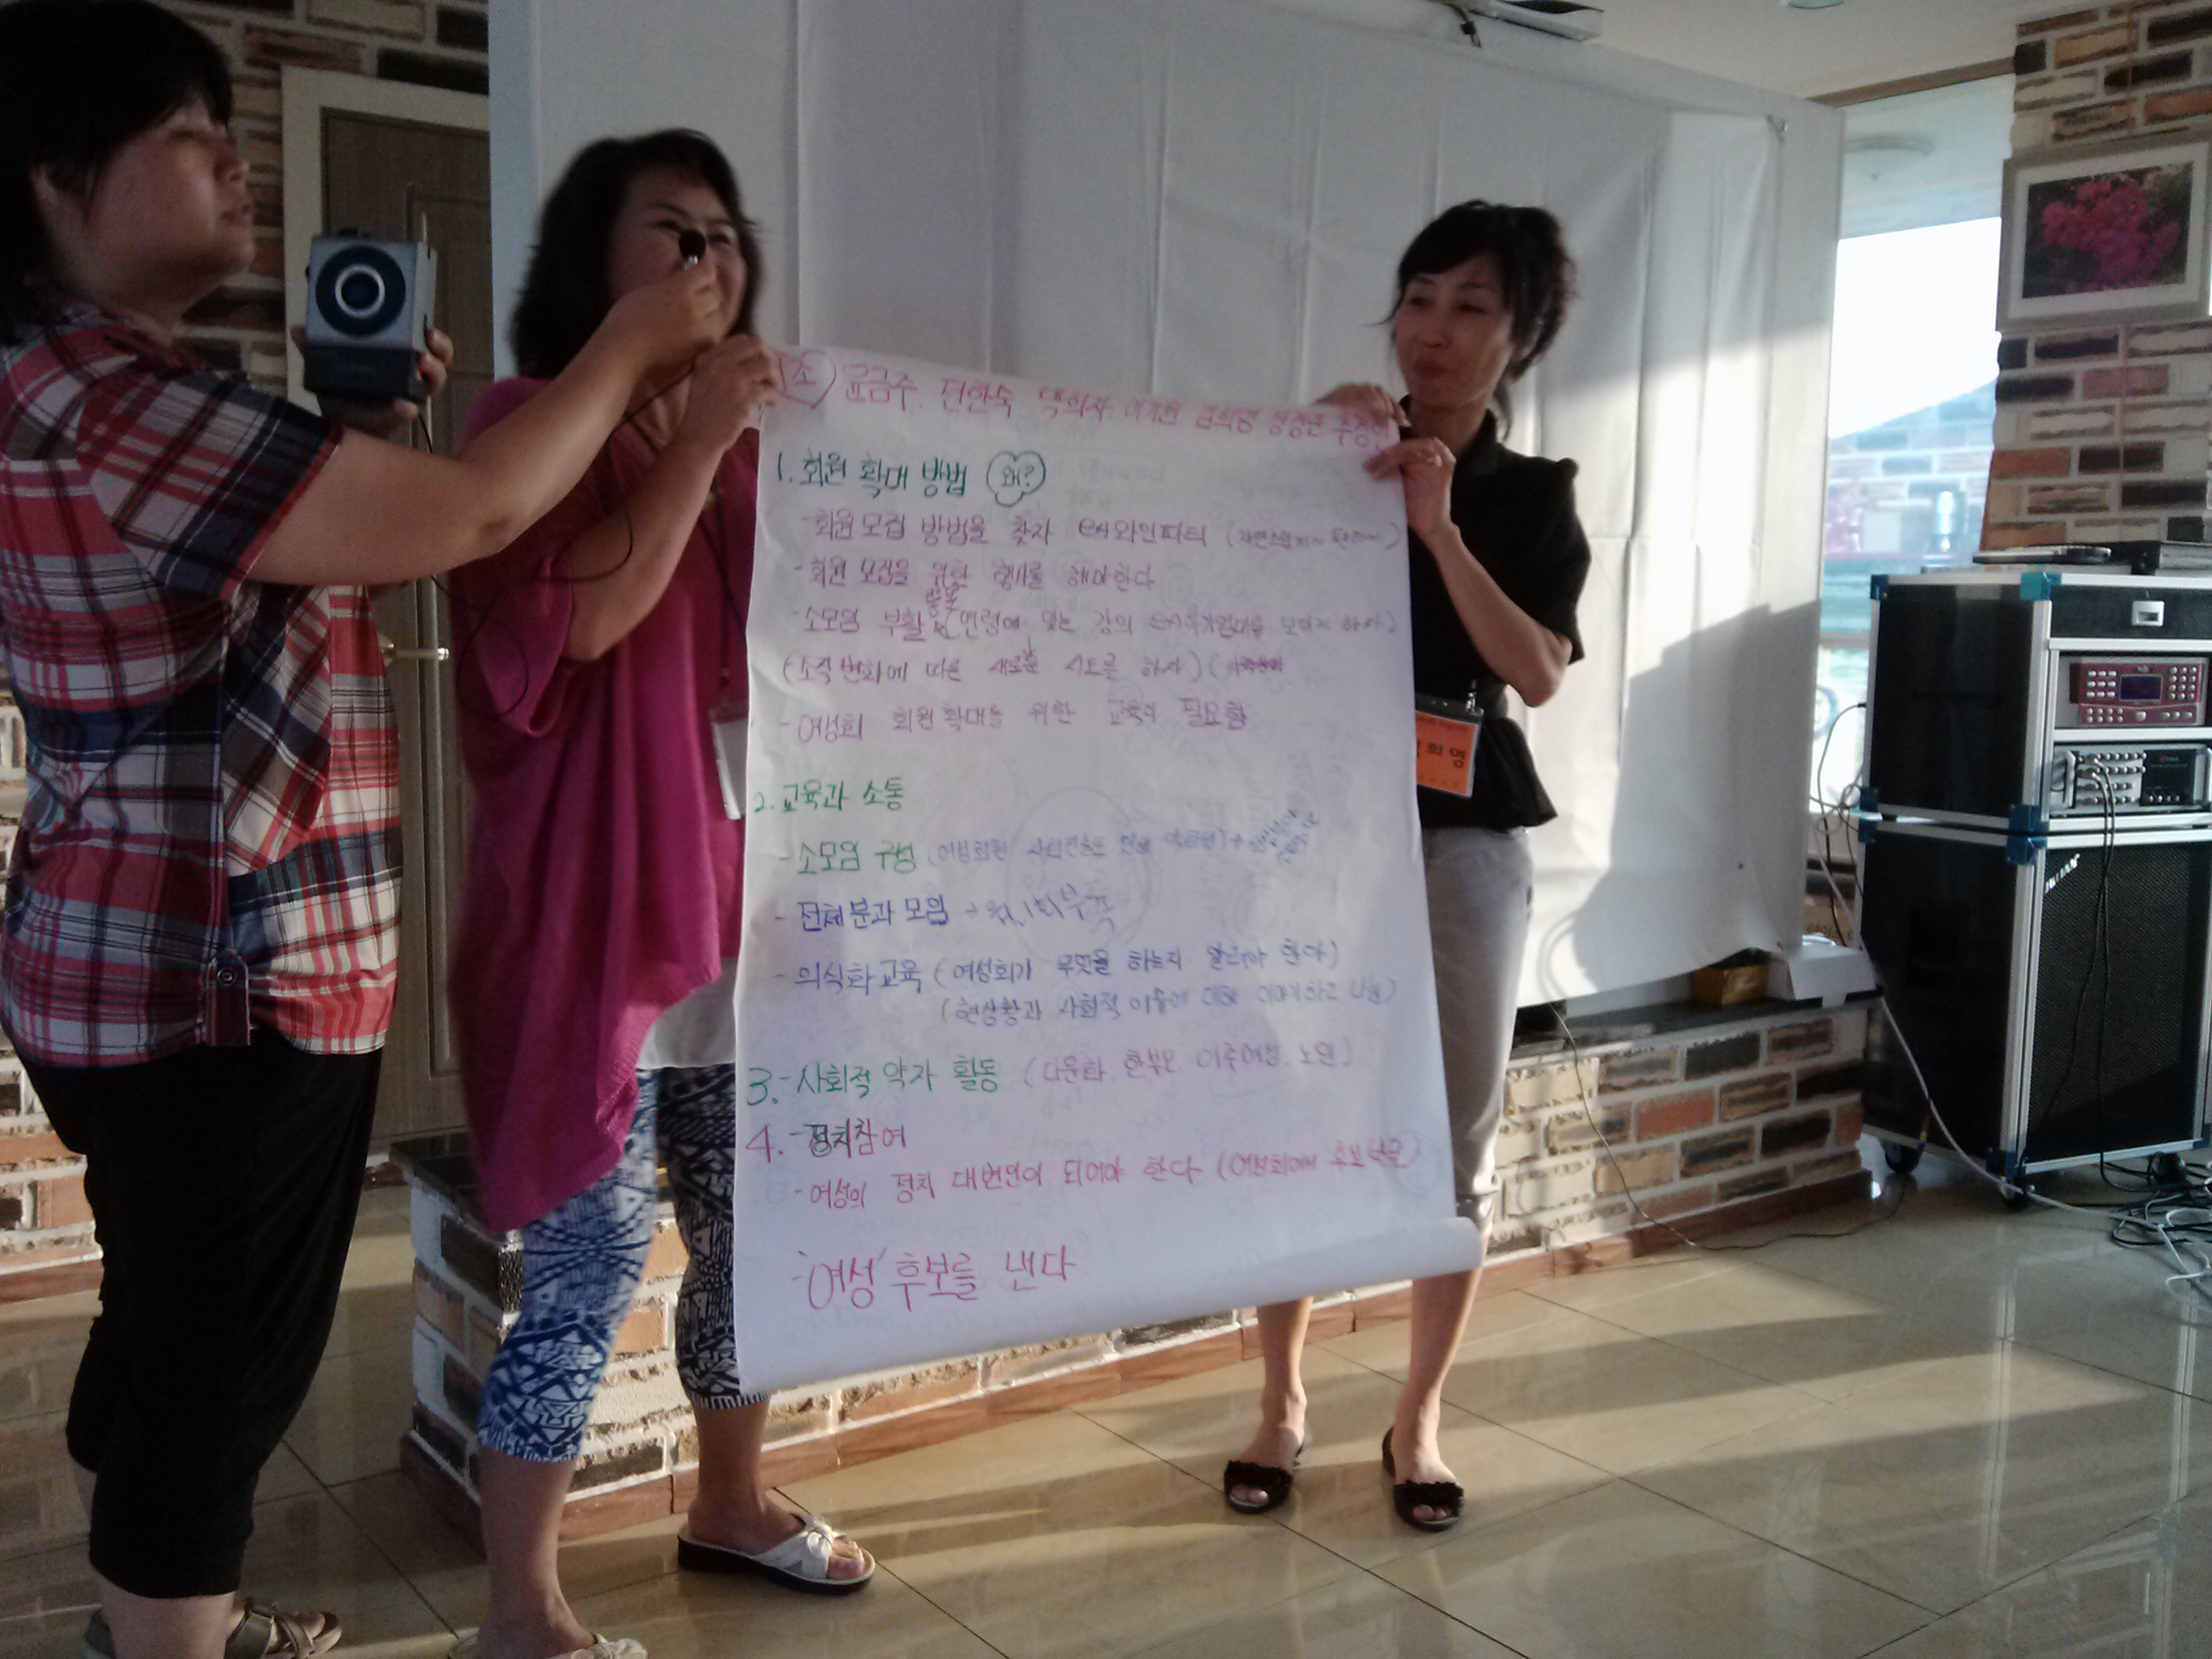 조 윤금수. 전한숙 박희자. 이기원 김희영 정경란
1. 회원 확대 방법 왜?
- 회원 모집 방법을 찾자 ex) 와인파티
- 회원 모집을 위한 행사를 해야한다
- 소모임 부활 (연령에 맞는 강의 ex) 아기엄마들 모이게 하자)
(조직변화에 따른 새로운 시도를 하자)
- 여성회 회원확대를 위한 교육이 필요함
2. 교육과 소통
- 소모임 구성
- 전체분과 모임 →
- 의식화교육 (여성회가 무엇을 하는지 알려야 한다)
(현상황과 사회적 이슈에 대해 이야기하고 나눔)
3. - 사회적 약자 활동 (다문화. 한부모. 이주여성. 노인)
4. - 정치참여
- 여성의 정치 대변인이 되어야 한다 (여성회에서 후보
- '여성' 후보를 낸다
희영